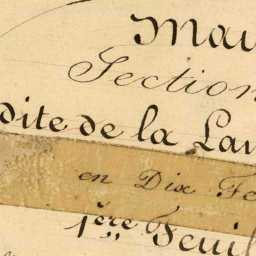 Mai
Section
dite de la Lan
en Dix Fe
1ère Feuil